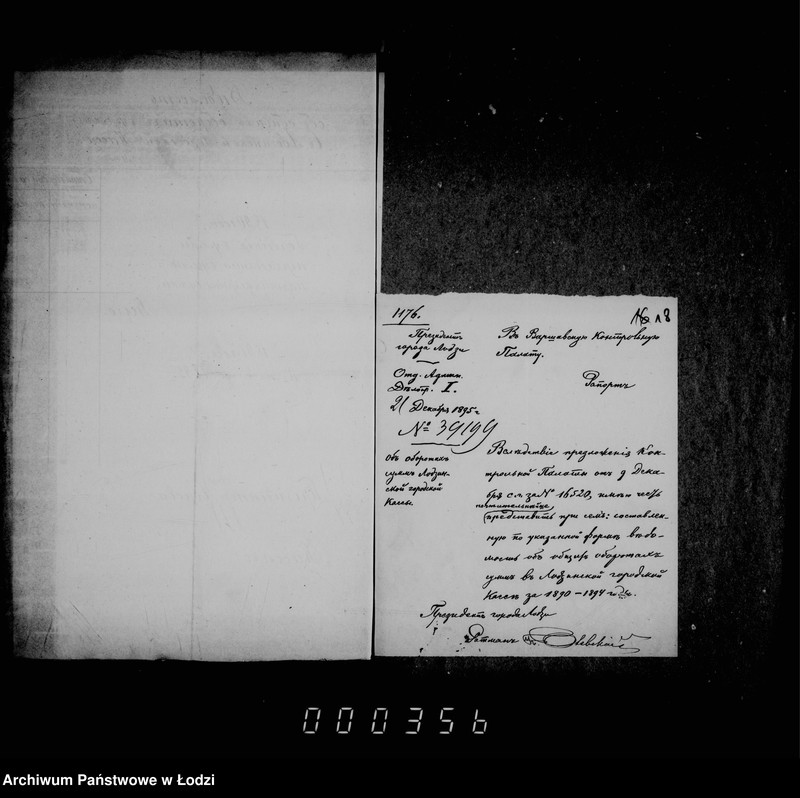 1176.
№ 18
Президентъ
города Лодзи
Отд. Админ.
I.
21 Декабря 1895 г.
№ 39199
Объ оборотахъ
суммъ Лодзин-
ской городской
Кассы.
Въ Варшавскую Контрольную
Палату.
Рапортъ
Вслѣдствіе предложенія Кон-
трольной Палаты отъ 9 Дека-
бря с.г. за № 16520, имѣю честь
почтительнѣйше
представить при семъ: составлен-
ную по указанной формѣ вѣдо-
мость объ общихъ оборотахъ
суммъ въ Лодзинской городской
Кассѣ за 1890–1894 годы.
Президентъ города Лодзи
Ратманъ
000356
Archiwum Państwowe w Łodzi